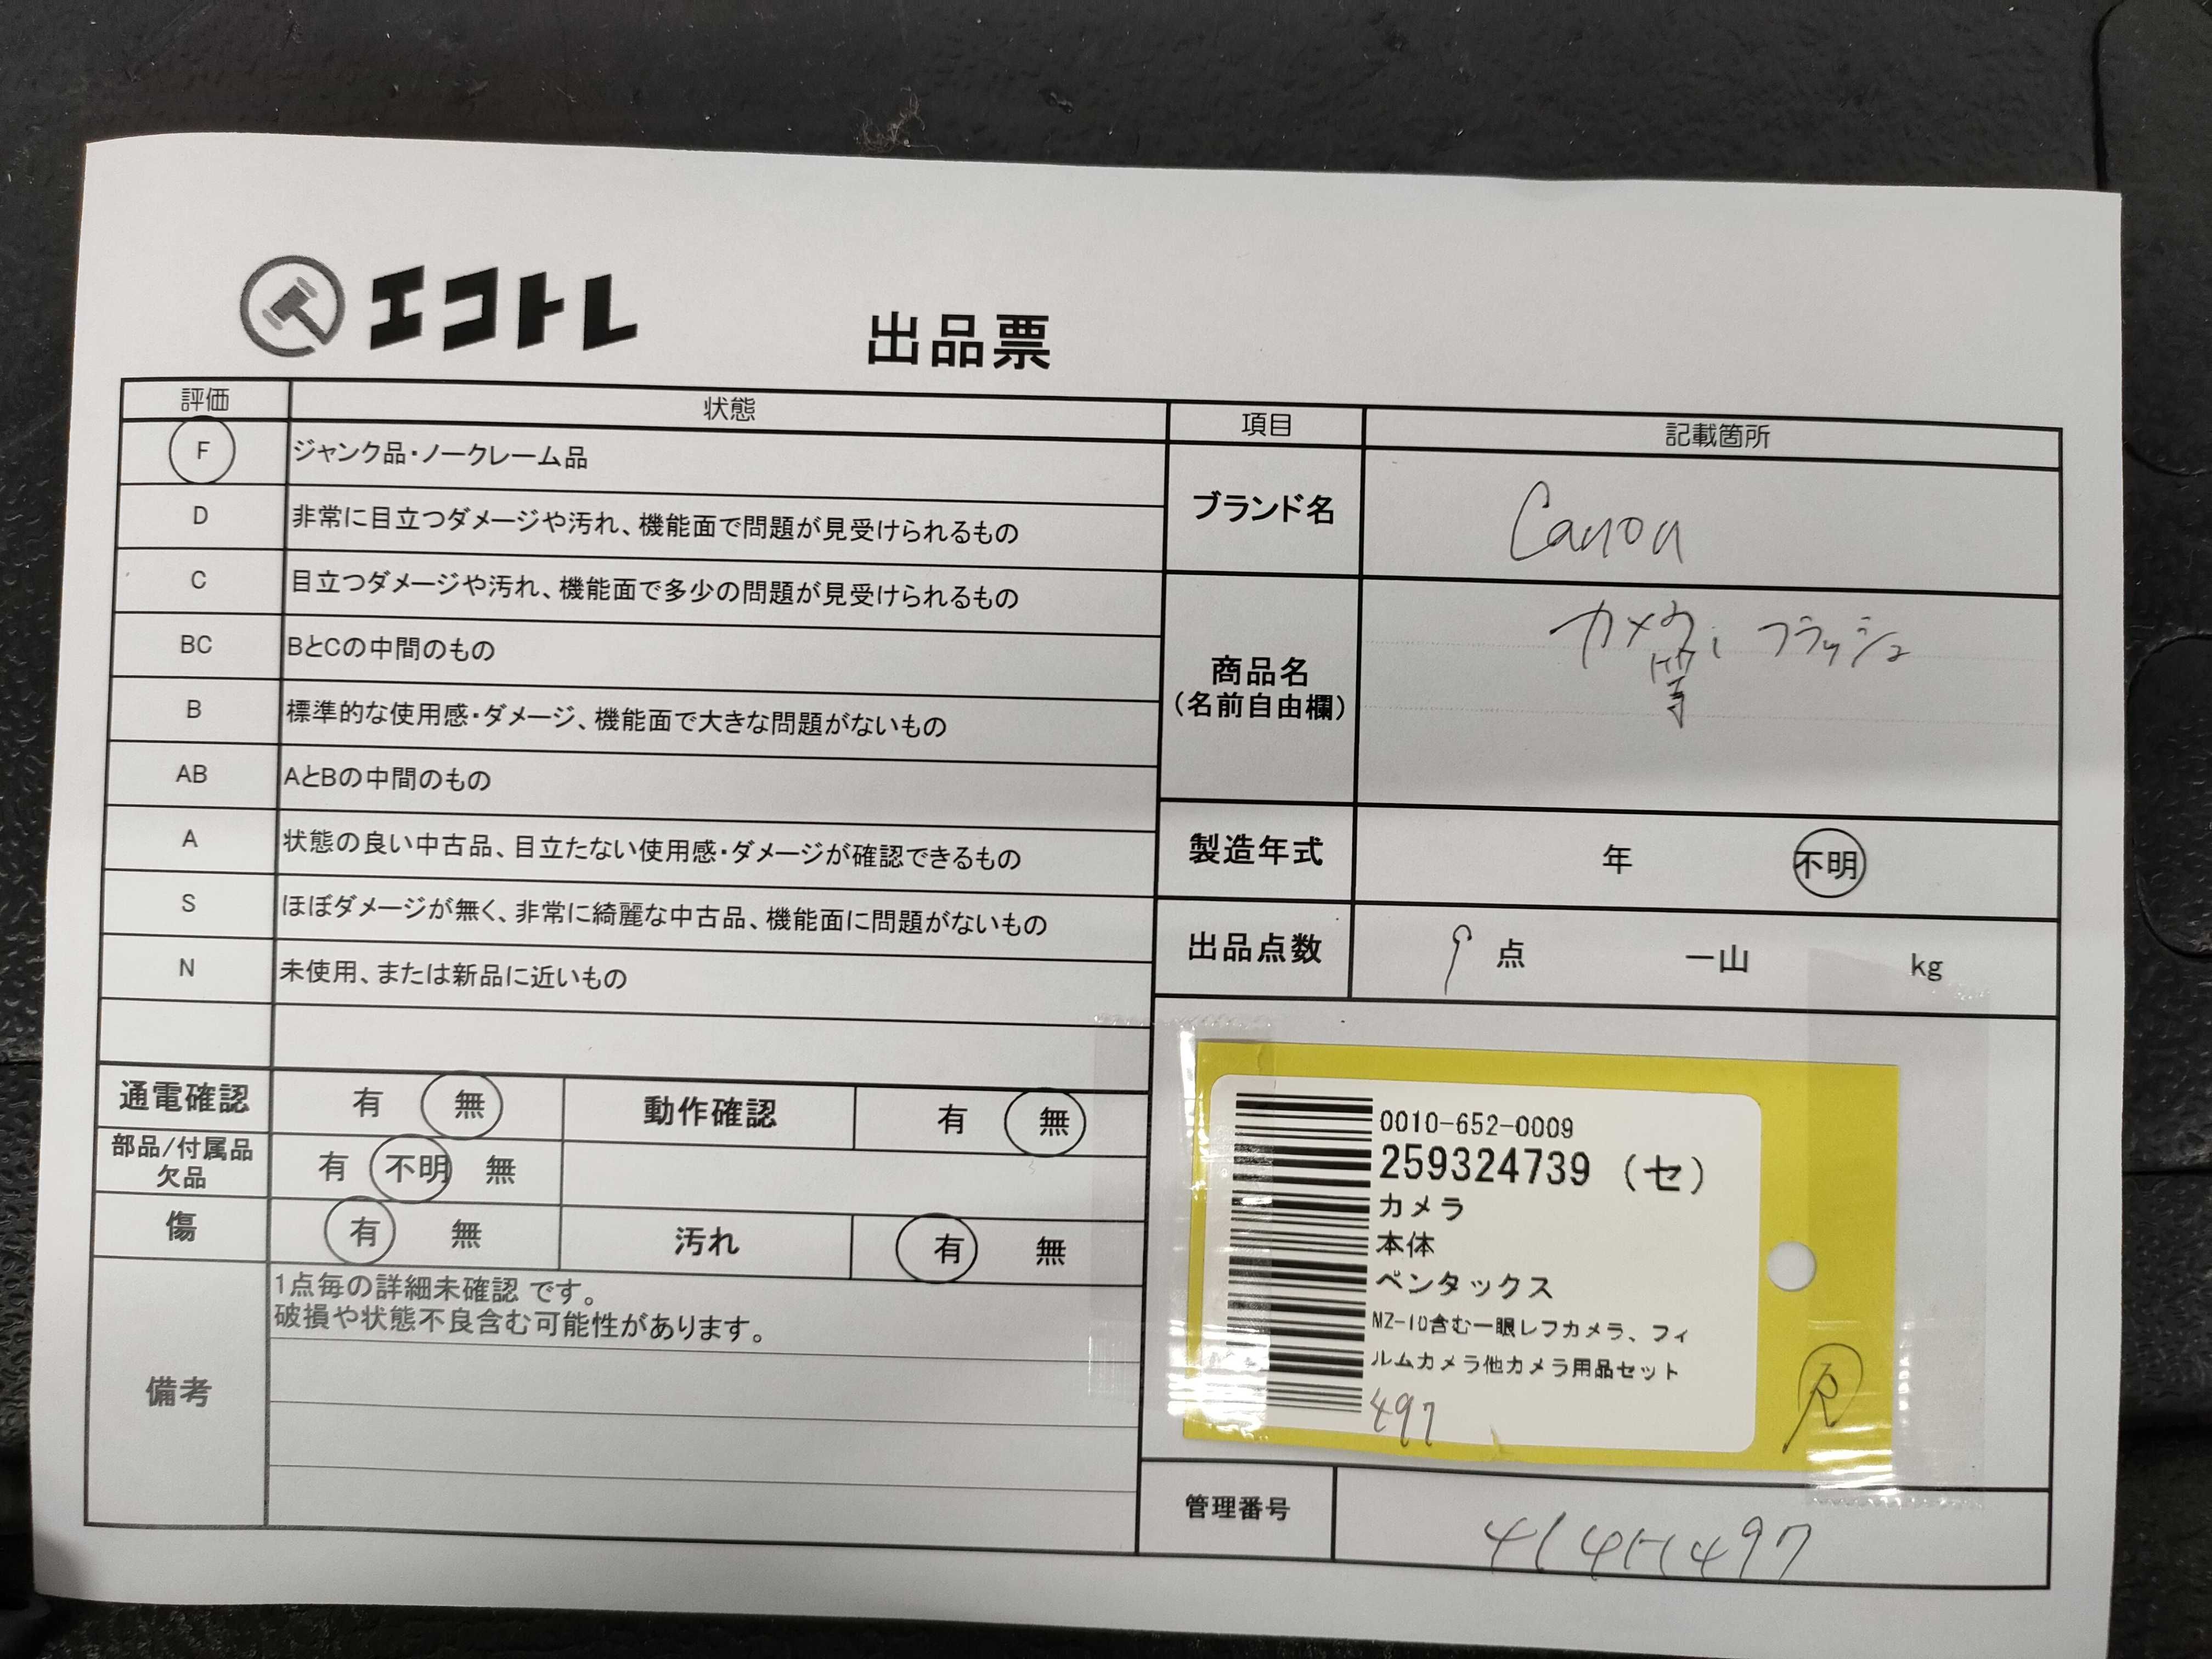 エコトレ
出品票
評価 状態
F ジャンク品・ノークレーム品
D 非常に目立つダメージや汚れ、機能面で問題が見受けられるもの
C 目立つダメージや汚れ、機能面で多少の問題が見受けられるもの
BC BとCの中間のもの
B 標準的な使用感・ダメージ、機能面で大きな問題がないもの
AB AとBの中間のもの
A 状態の良い中古品、目立たない使用感・ダメージが確認できるもの
S ほぼダメージが無く、非常に綺麗な中古品、機能面に問題がないもの
N 未使用、または新品に近いもの
通電確認 有 無 動作確認 有 無
部品/付属品
欠品 有 不明 無
傷 有 無 汚れ 有 無
備考
1点毎の詳細未確認 です。
破損や状態不良含む可能性があります。
項目 記載箇所
ブランド名 Canon
商品名
(名前自由欄)
カメラ フラッシュ
等
製造年式 年 不明
出品点数 9 点 一山 kg
0010-652-0009
259324739 (セ)
カメラ
本体
ペンタックス
MZ-10含む一眼レフカメラ、フィ
ルムカメラ他カメラ用品セット
497
R
管理番号